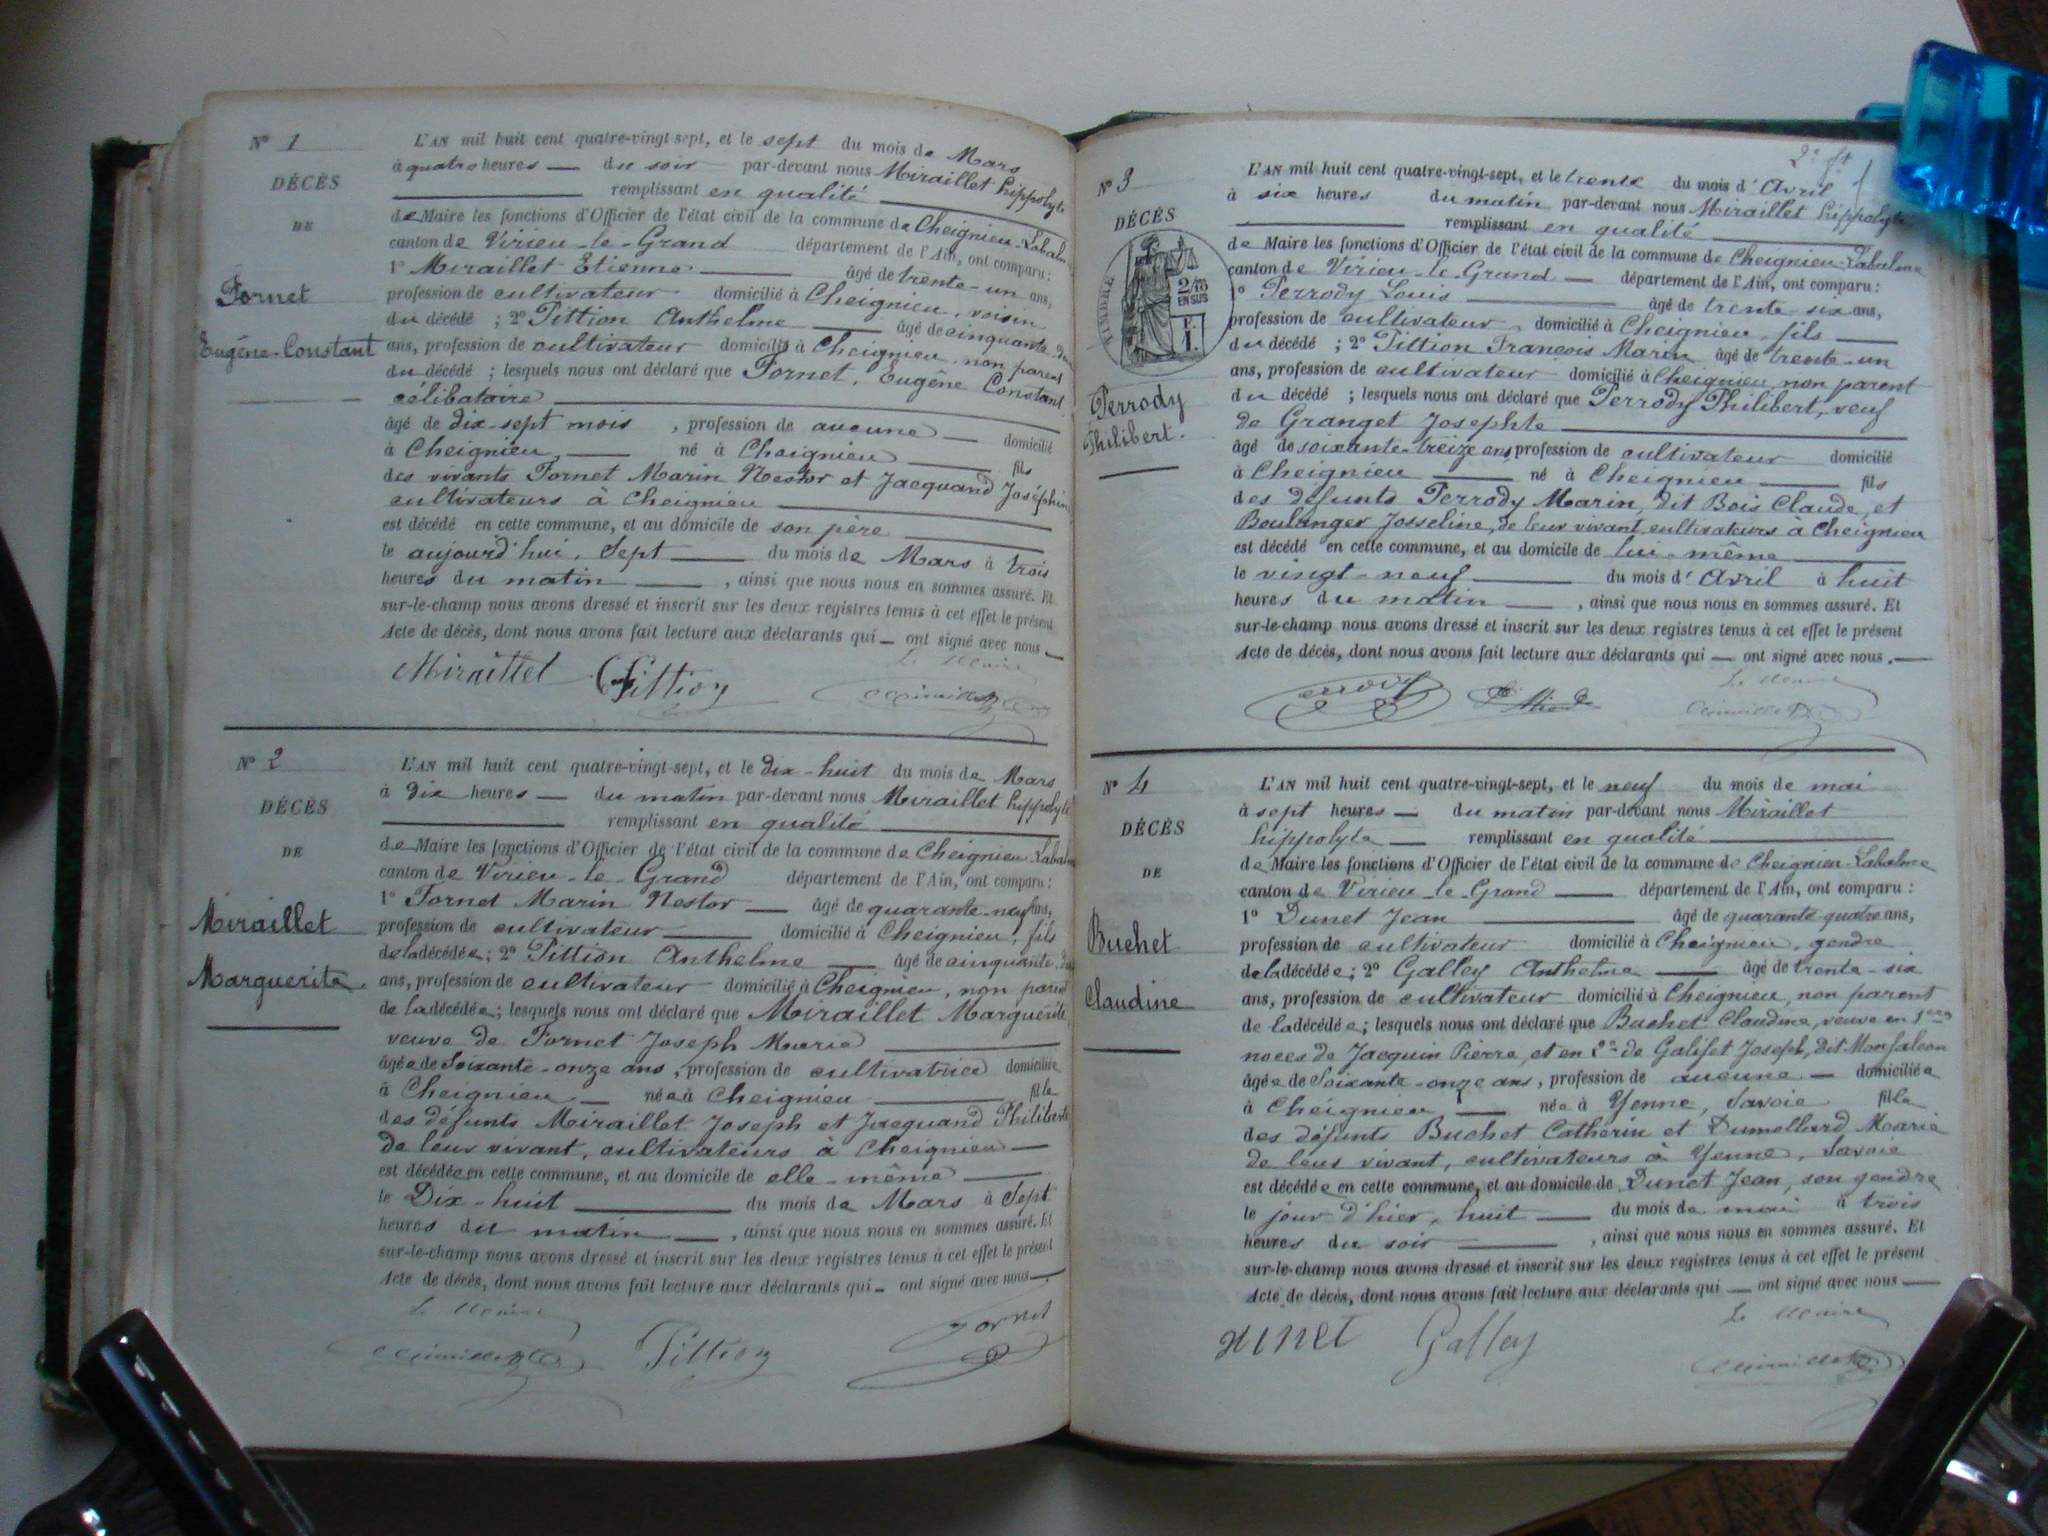 N° 1
DÉCÈS
DE
Fornet
Eugène-Constant
L'AN mil huit cent quatre-vingt-sept, et le sept du mois de Mars
à quatre heures du soir par-devant nous Miraillet hippolyte
remplissant en qualité
de Maire les fonctions d'Officier de l'état civil de la commune de Cheignieu-Labalme
canton de Virieu-le-Grand département de l'Ain, ont comparu :
1° Miraillet Etienne âgé de trente-un ans,
profession de cultivateur domicilié à Cheignieu, voisin
du décédé ; 2° Tittion Anthelme âgé de cinquante-deux
ans, profession de cultivateur domicilié à Cheignieu, non parent
du décédé ; lesquels nous ont déclaré que Fornet, Eugène Constant
célibataire
âgé de dix-sept mois, profession de aucune domicilié
à Cheignieu, né à Cheignieu fils
des vivants Fornet Marin Nestor et Jacquand Joséphine
cultivateurs à Cheignieu
est décédé en cette commune, et au domicile de son père
le aujourd'hui, Sept du mois de Mars à trois
heures du matin, ainsi que nous nous en sommes assuré. Et
sur-le-champ nous avons dressé et inscrit sur les deux registres tenus à cet effet le présent
Acte de décès, dont nous avons fait lecture aux déclarants qui ont signé avec nous
Le Maire
Miraillet Tittion Miraillet
N° 2
DÉCÈS
DE
Miraillet
Marguerite.
L'AN mil huit cent quatre-vingt-sept, et le dix-huit du mois de Mars
à dix heures du matin par-devant nous Miraillet hippolyte
remplissant en qualité
de Maire les fonctions d'Officier de l'état civil de la commune de Cheignieu-Labalme
canton de Virieu-le-Grand département de l'Ain, ont comparu :
1° Fornet Marin Nestor âgé de quarante-neuf ans,
profession de cultivateur domicilié à Cheignieu, fils
de la décédée ; 2° Tittion Anthelme âgé de cinquante-deux
ans, profession de cultivateur domicilié à Cheignieu, non parent
de la décédée ; lesquels nous ont déclaré que Miraillet Marguerite,
veuve de Fornet Joseph Marie
âgée de Soixante-onze ans, profession de cultivatrice domiciliée
à Cheignieu née à Cheignieu fille
des défunts Miraillet Joseph et Jacquand Philiberte
de leur vivant, cultivateurs à Cheignieu
est décédée en cette commune, et au domicile de elle-même
le Dix-huit du mois de Mars à Sept
heures du matin, ainsi que nous nous en sommes assuré. Et
sur-le-champ nous avons dressé et inscrit sur les deux registres tenus à cet effet le présent
Acte de décès, dont nous avons fait lecture aux déclarants qui ont signé avec nous
Le Maire
Miraillet Tittion Fornet
2e ft
N° 3
DÉCÈS
TIMBRE
2/10 EN SUS
F. 1.
Perrody
Philibert.
L'AN mil huit cent quatre-vingt-sept, et le trente du mois d'Avril
à six heures du matin par-devant nous Miraillet hippolyte
remplissant en qualité
de Maire les fonctions d'Officier de l'état civil de la commune de Cheignieu-Labalme
canton de Virieu-le-Grand département de l'Ain, ont comparu :
1° Perrody Louis âgé de trente-six ans,
profession de cultivateur, domicilié à Cheignieu, fils
du décédé ; 2° Tittion François Marin âgé de trente-un
ans, profession de cultivateur domicilié à Cheignieu, non parent
du décédé ; lesquels nous ont déclaré que Perrody Philibert, veuf
de Granget Josephte
âgé de soixante-treize ans, profession de cultivateur domicilié
à Cheignieu né à Cheignieu fils
des défunts Perrody Marin, dit Bois Claude, et
Boulanger Josseline, de leur vivant cultivateurs à Cheignieu
est décédé en cette commune, et au domicile de lui-même
le vingt-neuf du mois d'Avril à huit
heures du matin, ainsi que nous nous en sommes assuré. Et
sur-le-champ nous avons dressé et inscrit sur les deux registres tenus à cet effet le présent
Acte de décès, dont nous avons fait lecture aux déclarants qui ont signé avec nous.
Le Maire
Miraillet
N° 4
DÉCÈS
DE
Buchet
Claudine
L'AN mil huit cent quatre-vingt-sept, et le neuf du mois de mai
à sept heures du matin par-devant nous Miraillet
hippolyte remplissant en qualité
de Maire les fonctions d'Officier de l'état civil de la commune de Cheignieu-Labalme
canton de Virieu-le-Grand département de l'Ain, ont comparu :
1° Dunet Jean âgé de quarante-quatre ans,
profession de cultivateur domicilié à Cheignieu, gendre
de la décédée ; 2° Galley Anthelme âgé de trente-six
ans, profession de cultivateur domicilié à Cheignieu, non parent
de la décédée ; lesquels nous ont déclaré que Buchet Claudine, veuve en 1ères
noces de Jacquin Pierre, et en 2es de Galifet Joseph, dit Monfalcon
âgée de Soixante-onze ans, profession de aucune domiciliée
à Cheignieu née à Yenne, Savoie fille
des défunts Buchet Catherin et Dumollard Marie
de leur vivant, cultivateurs à Yenne, Savoie
est décédée en cette commune, et au domicile de Dunet Jean, son gendre
le jour d'hier, huit du mois de mai à trois
heures du soir, ainsi que nous nous en sommes assuré. Et
sur-le-champ nous avons dressé et inscrit sur les deux registres tenus à cet effet le présent
Acte de décès, dont nous avons fait lecture aux déclarants qui ont signé avec nous
Le Maire
Dunet Galley Miraillet